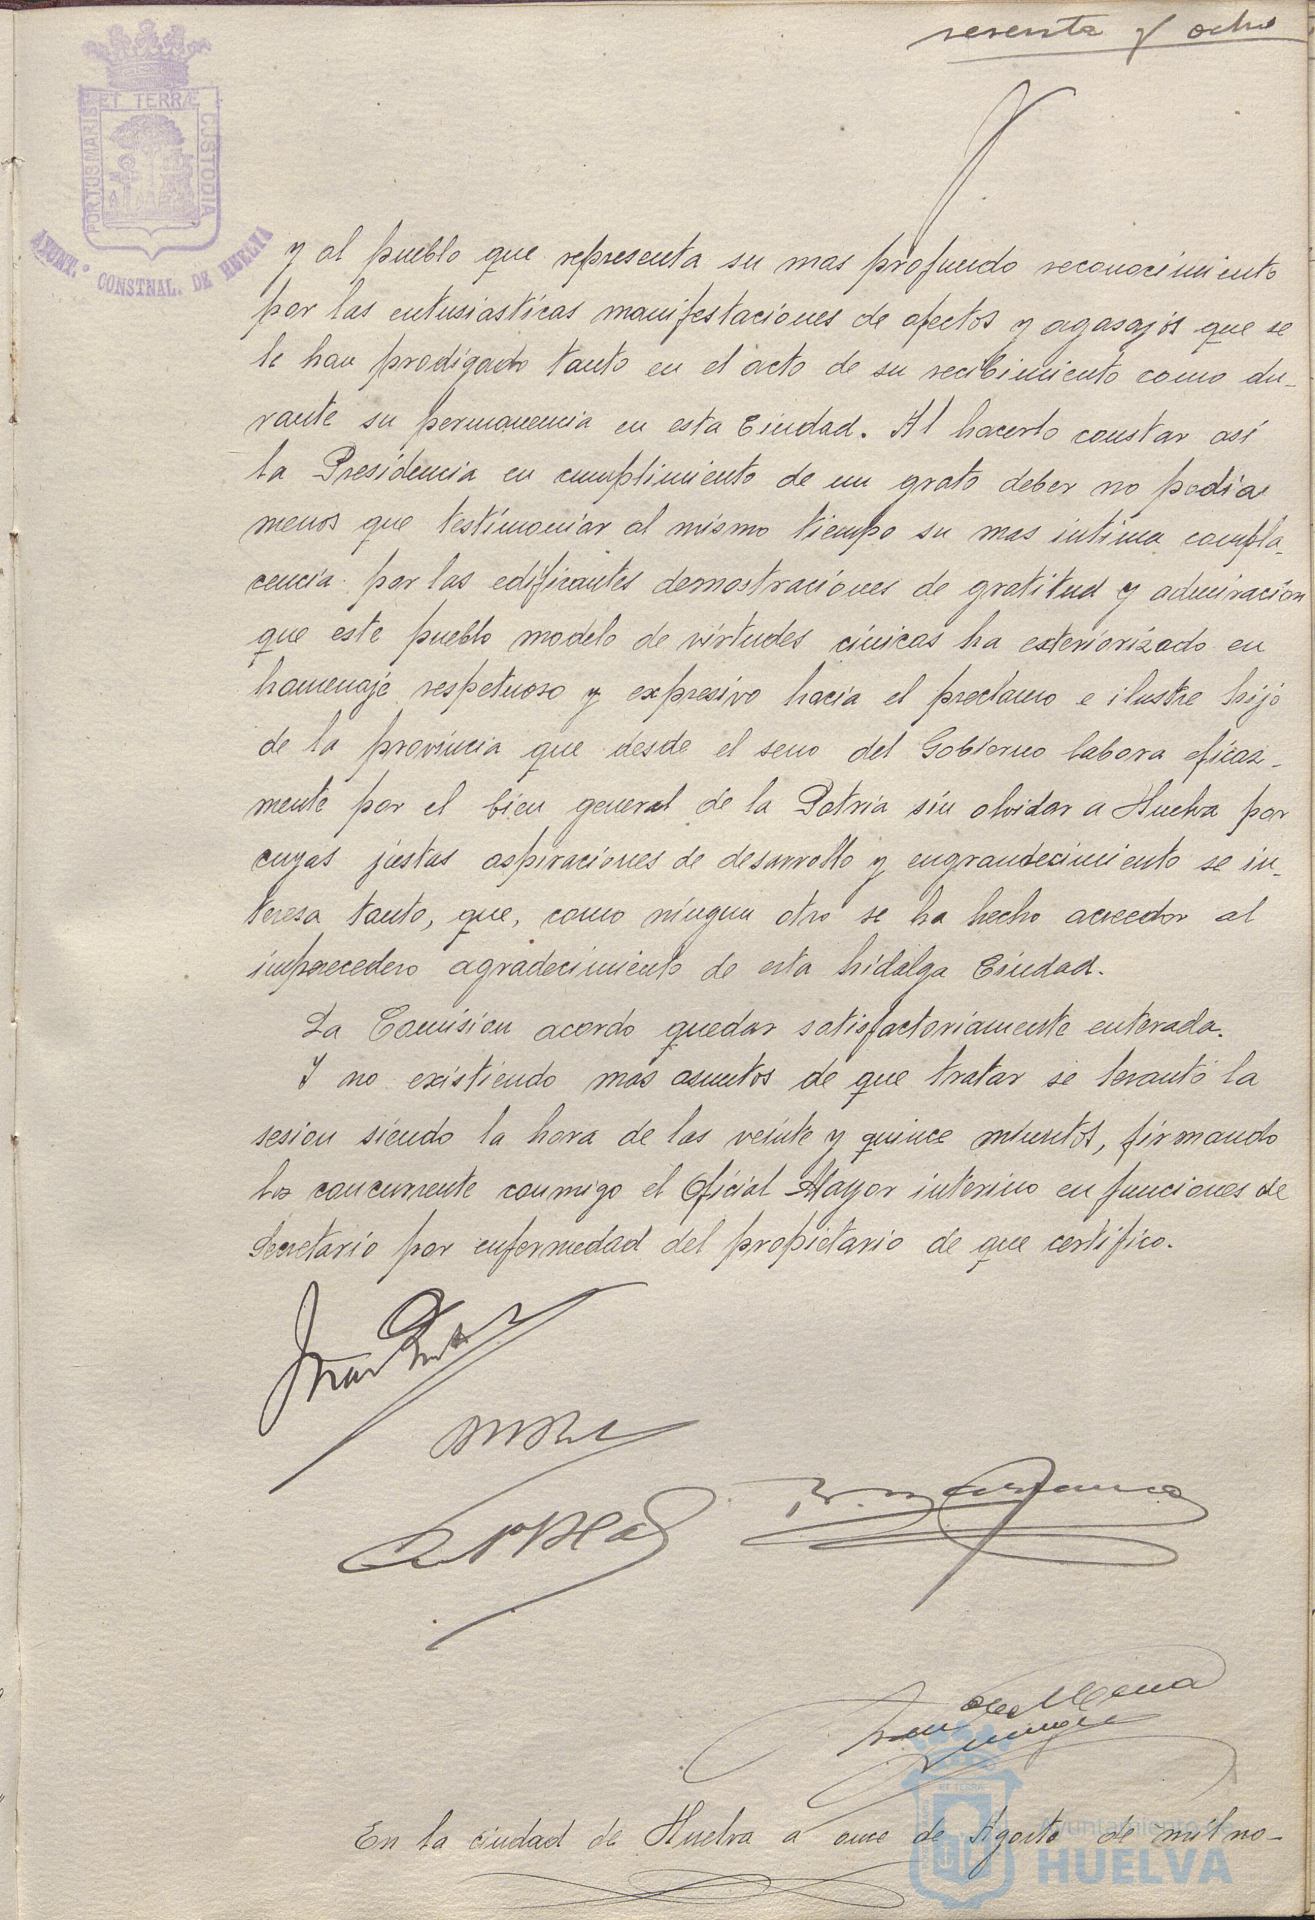 sesenta y ocho
PORTUS MARIS ET TERRÆ CUSTODIA
AYUNT.º CONSTNAL. DE HUELVA
y al pueblo que representa su mas profundo reconocimiento
por las entusiasticas manifestaciones de afectos y agasajos que se
le han prodigado tanto en el acto de su recibimiento como du-
rante su permanencia en esta Ciudad. Al hacerlo constar así
la Presidencia en cumplimiento de un grato deber no podia
menos que testimoniar al mismo tiempo su mas intima compla-
cencia por las edificantes demostraciones de gratitud y admiración
que este pueblo modelo de virtudes civicas ha exteriorizado en
homenaje respetuoso y expresivo hacia el preclaro e ilustre hijo
de la provincia que desde el seno del Gobierno labora eficaz-
mente por el bien general de la Patria sin olvidar a Huelva por
cuyas justas aspiraciones de desarrollo y engrandecimiento se in-
teresa tanto, que, como ningun otro se ha hecho acreedor al
imperecedero agradecimiento de esta hidalga Ciudad.
La Comision acordo quedar satisfactoriamente enterada.
Y no existiendo mas asuntos de que tratar se levantó la
sesion siendo la hora de las veinte y quince minutos, firmando
los concurrente conmigo el Oficial Mayor interino en funciones de
Secretario por enfermedad del propietario de que certifico.
En la ciudad de Huelva a once de Agosto de mil no-
ET TERRÆ
Ayuntamiento de
HUELVA